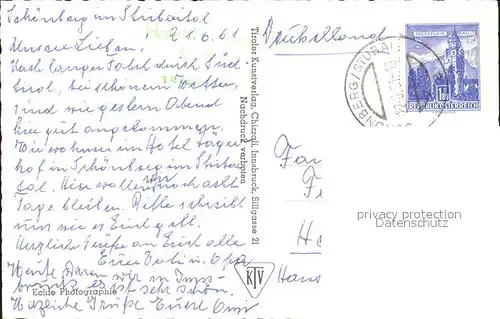 Schönberg im Stubaital
21.6.61
Unsere Lieben.
Nach langer Fahrt durch Süd-
tirol, bei schönem Wetter,
sind wir gestern Abend
hier gut angekommen.
Wir wohnen im Hotel Jäger
hof in Schönberg im Stubai
tal. Hier wollen wir noch acht
Tage bleiben. Bitte schreibt
uns wie es Euch geht.
Herzliche Grüße an Euch alle
Eure Opa
Heute waren wir in Inns-
bruck es ist sehr schön.
Herzliche Grüße Eure Omi
Echte Photographie
Tiroler Kunstverlag, Chizzali, Innsbruck, Sillgasse 21
Nachdruck verboten
KTV
Deutschland
SCHÖNBERG/STUBAI
REPUBLIK ÖSTERREICH
Fa
F
H
Hans
privacy protection
AnsichtskartenVersand.com